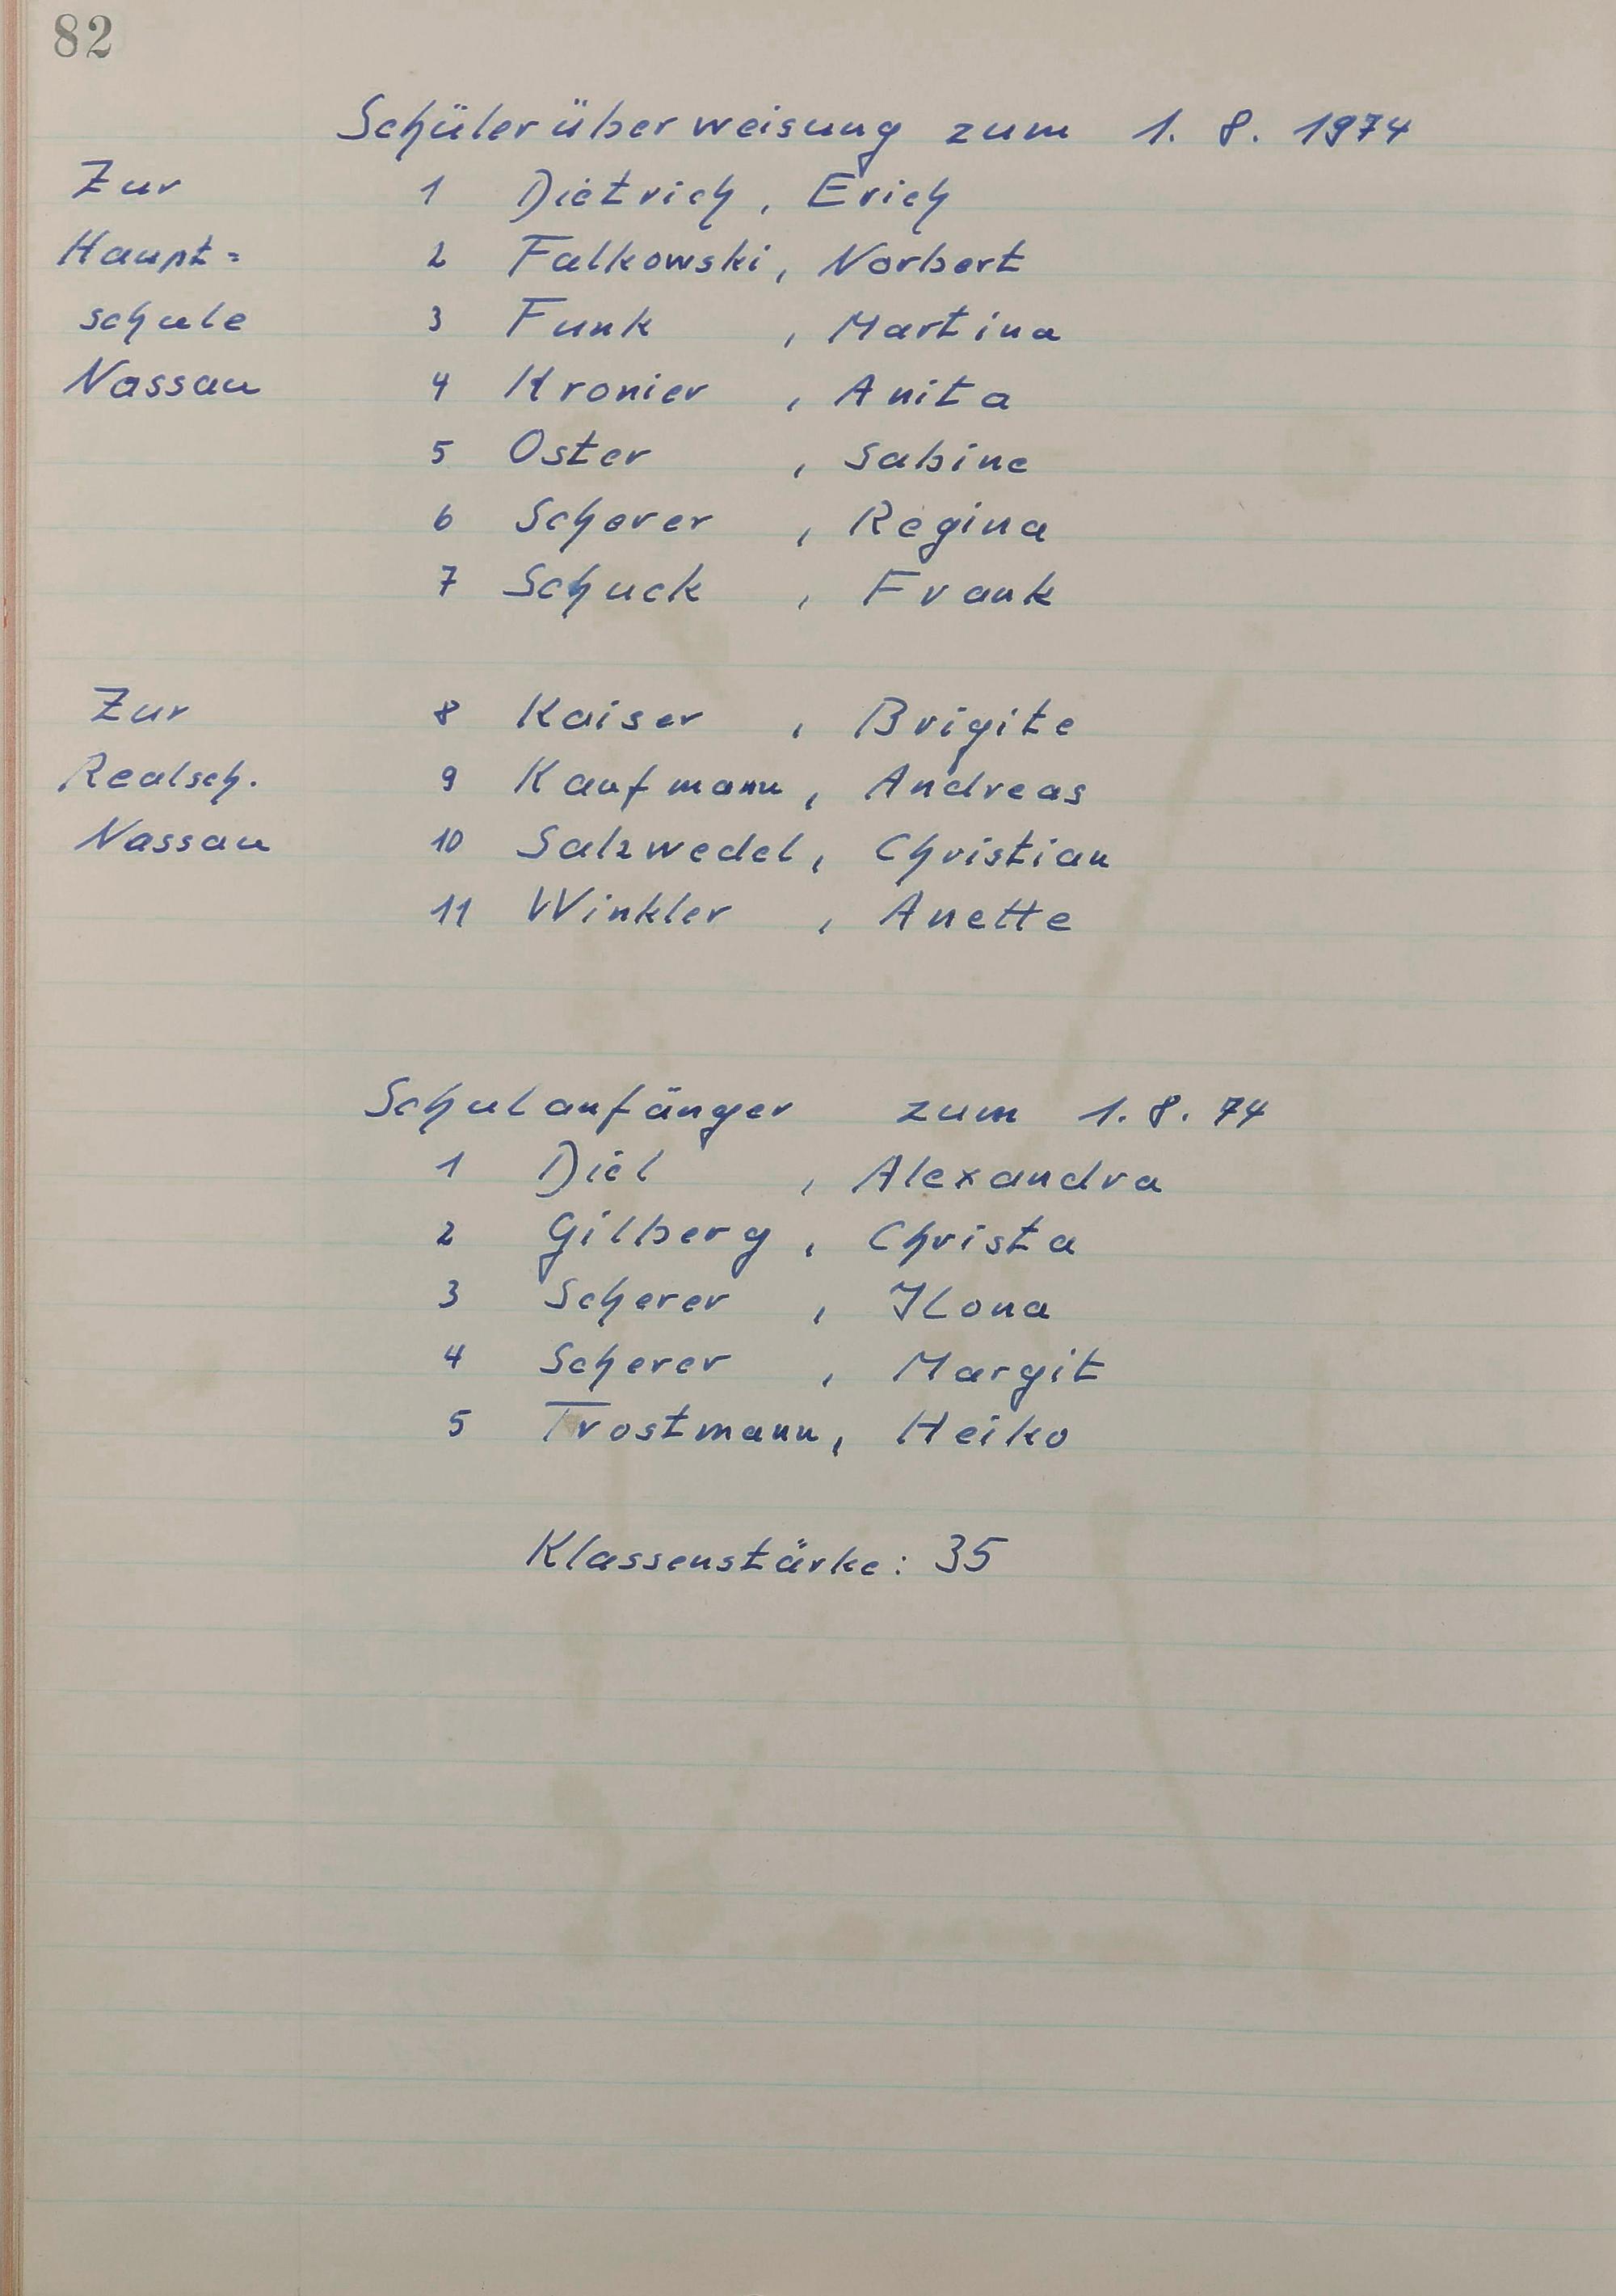 82
Schülerüberweisung zum 1. 8. 1974
Zur 1 Dietrich, Erich
Haupt= 2 Falkowski, Norbert
schule 3 Funk, Martina
Nassau 4 Kronier, Anita
5 Oster, Sabine
6 Scherer, Regina
7 Schuck, Frank
Zur 8 Kaiser, Brigite
Realsch. 9 Kaufmann, Andreas
Nassau 10 Salzwedel, Christian
11 Winkler, Anette
Schulanfänger zum 1. 8. 74
1 Diel, Alexandra
2 Gilberg, Christa
3 Scherer, Ilona
4 Scherer, Margit
5 Trostmann, Heiko
Klassenstärke: 35